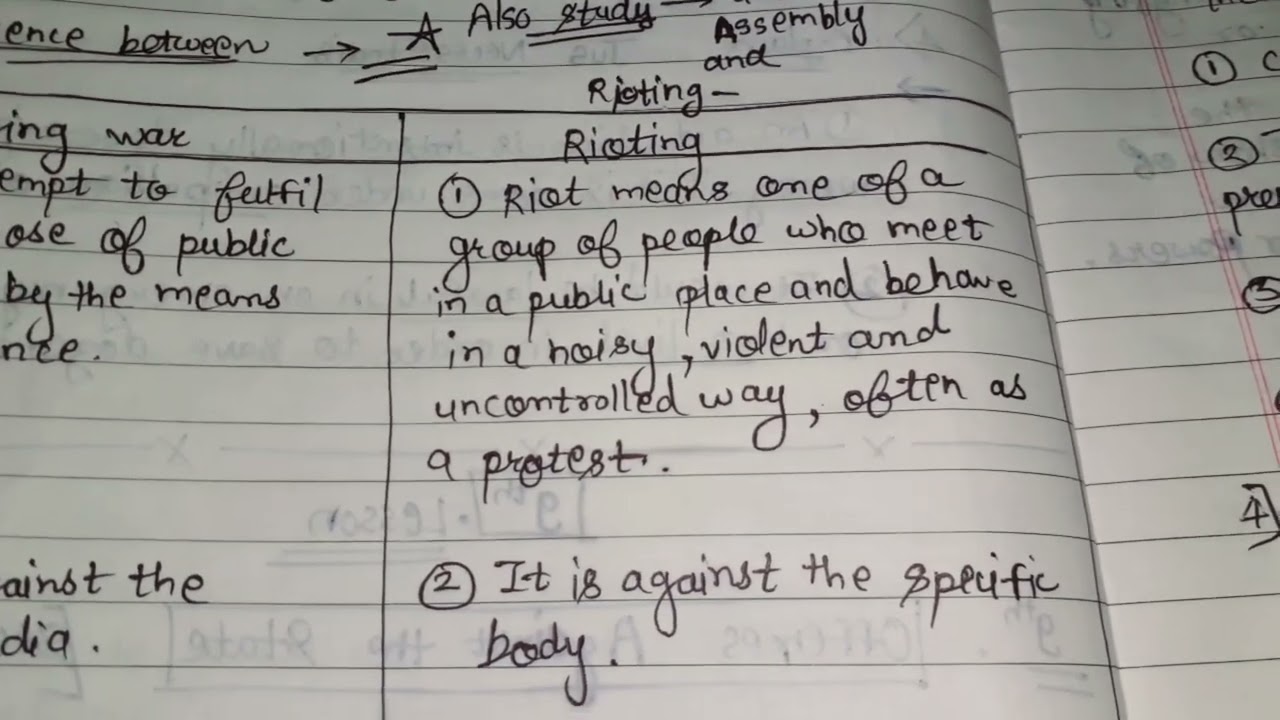 ence between → Also study →
Assembly
and
Rioting -
ing war
Rioting
empt to fulfil
ose of public
by the means
nce.
① Riot means one of a
group of people who meet
in a public place and behave
in a noisy, violent and
uncontrolled way, often as
a protest.
ainst the
dia.
② It is against the specific
body.
①
②
③
4